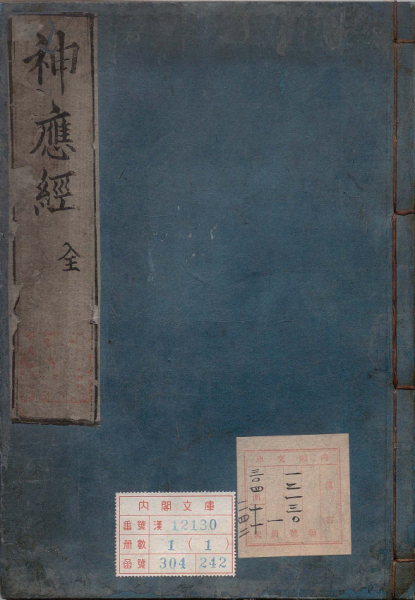 神應經
全
內閣文庫
番號 漢 12130
冊數 1 (1)
函號 304 242
一二一三〇
一
三〇四
二四二